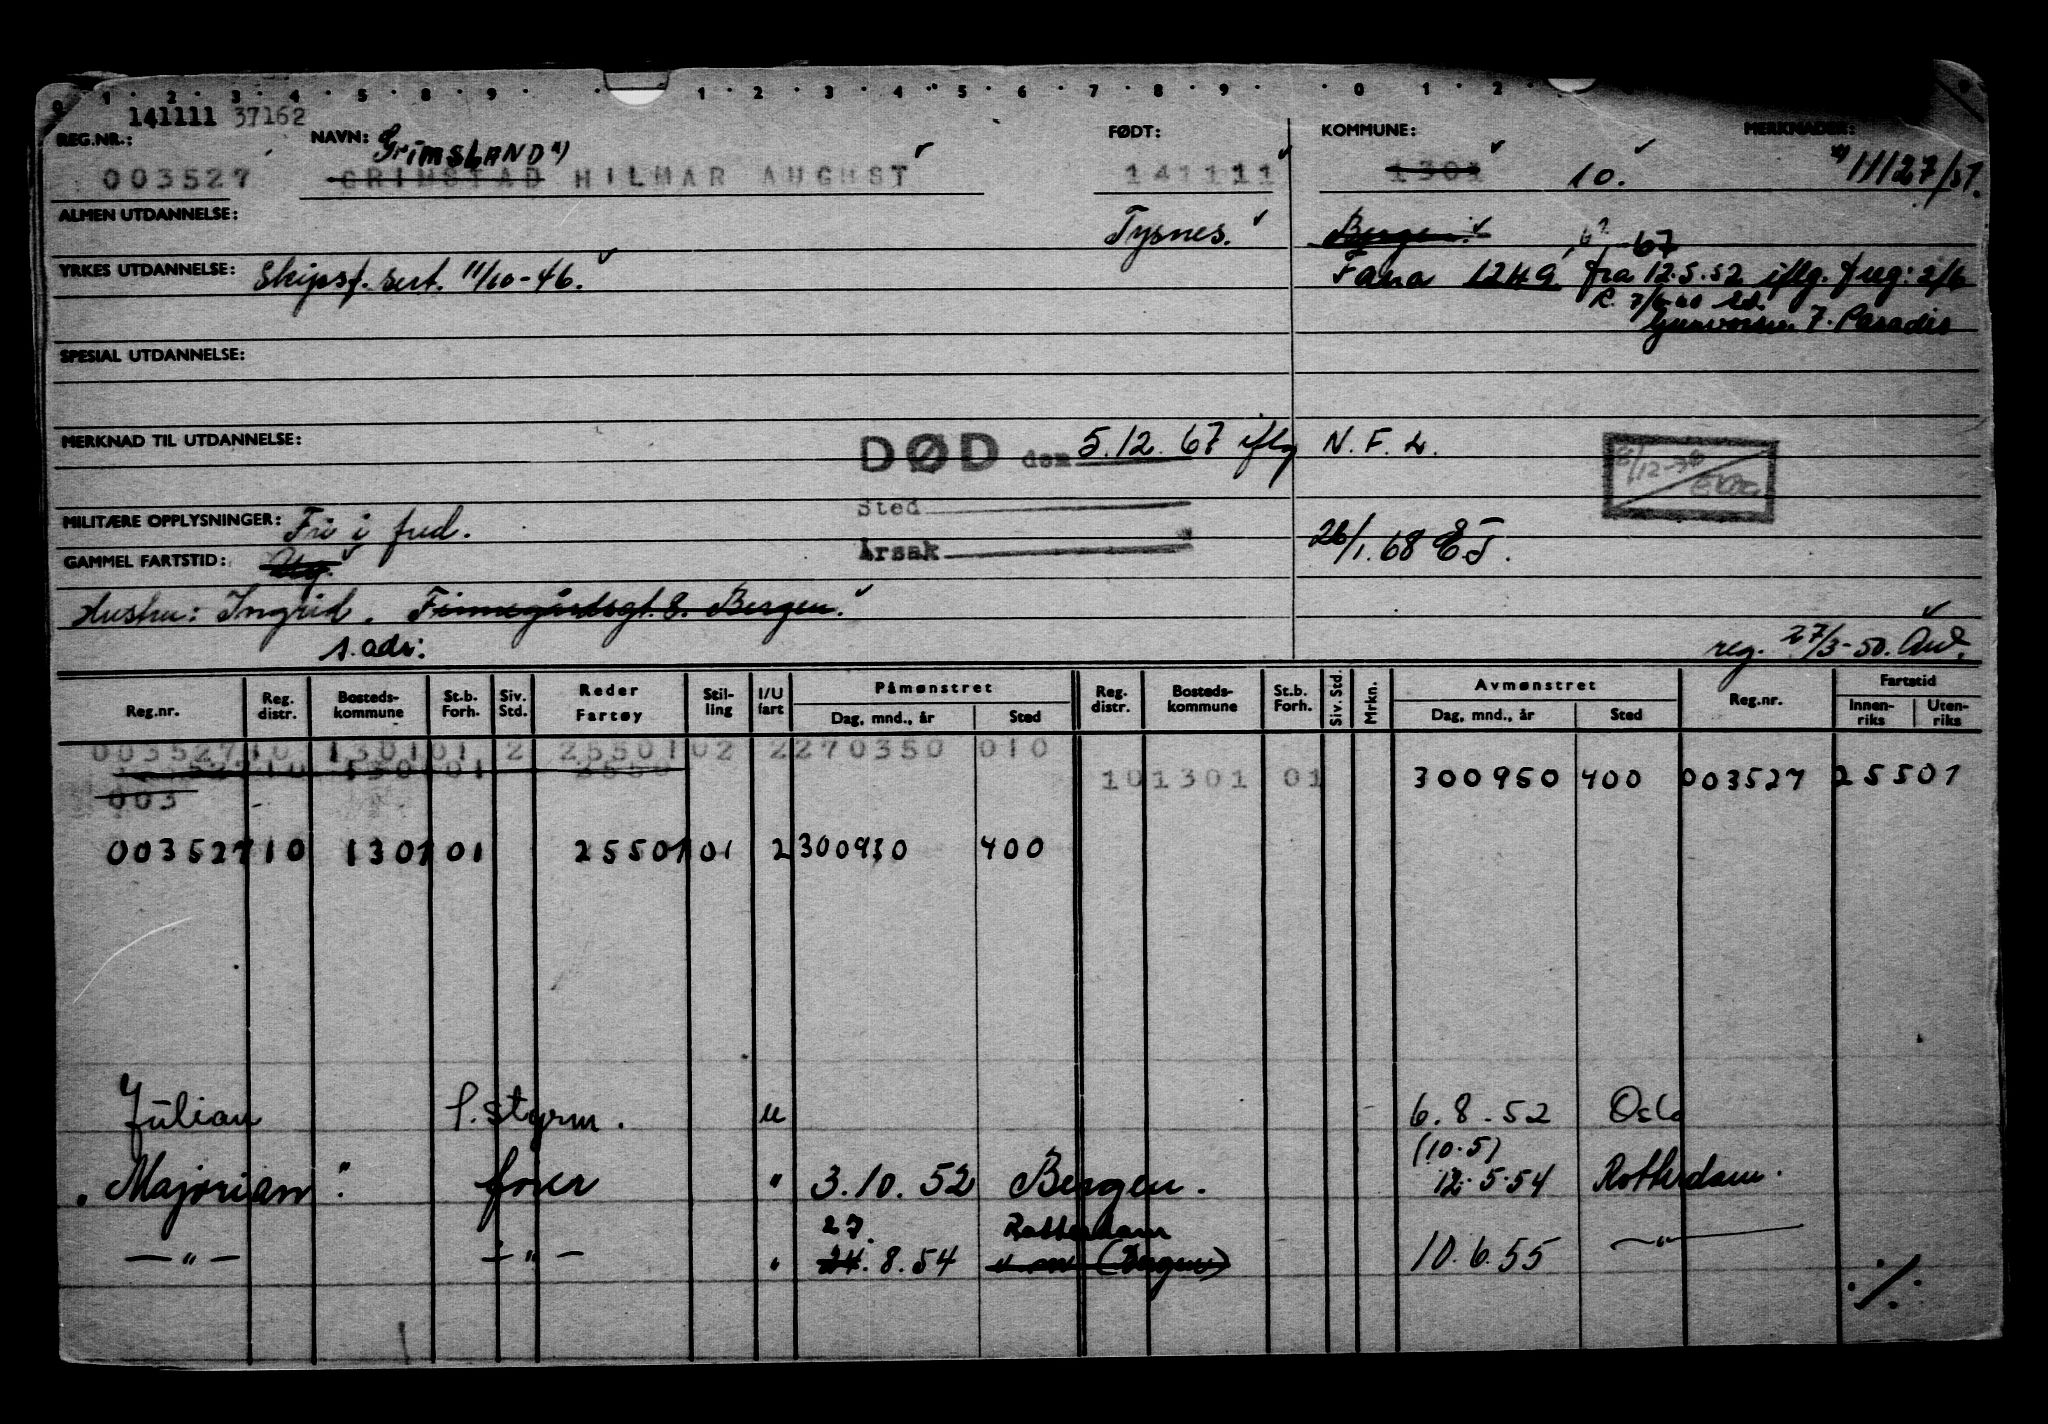 0 1 2 3 4 5 6 8 9 1 2 3 4 5 6 7 8 9 0 1 2
141111 37162
REG.NR.: NAVN: GrimsLAND *) FØDT: KOMMUNE: MERKNADER:
003527 GRIMSTAD HILMAR AUGUST 141111 1301 10. *) 11127/51.
ALMEN UTDANNELSE: Tysnes. Bergen. 67
YRKES UTDANNELSE: Skipsf. sert. 11/10-46. Fana 1249 fra 12.5.52 iflg. freg: 2/6
7. Paradis
SPESIAL UTDANNELSE:
MERKNAD TIL UTDANNELSE: DØD den 5.12.67 iflg N.F.L.
Sted
MILITÆRE OPPLYSNINGER: Fri i fred.
GAMMEL FARTSTID: Årsak 26/1.68 EJ.
Hustru: Ingrid. Finnegårdsgt. 8. Bergen.
s. adr: reg. 27/3-50.
Reg.nr. Reg. distr. Bosteds-kommune St.b. Forh. Siv. Std. Reder Fartøy Stil-ling I/U fart Påmønstret Dag, mnd., år Sted Reg. distr. Bosteds-kommune St.b. Forh. Siv. Std. Mrkn. Avmønstret Dag, mnd., år Sted Reg.nr. Fartstid Innen-riks Uten-riks
003527 10 1301 01 2 25501 02 2 270350 010
101301 01 300950 400 003527 25501
003
003527 10 1301 01 25501 01 2 300950 400
Julian 1. styrm. u 6.8.52 Oslo
(10.5)
"Majorian". fører " 3.10.52 Bergen. 12.5.54 Rotterdam.
27. Rotterdam
— " — — " — " 24.8.54 (Bergen) 10.6.55 — " —
./.